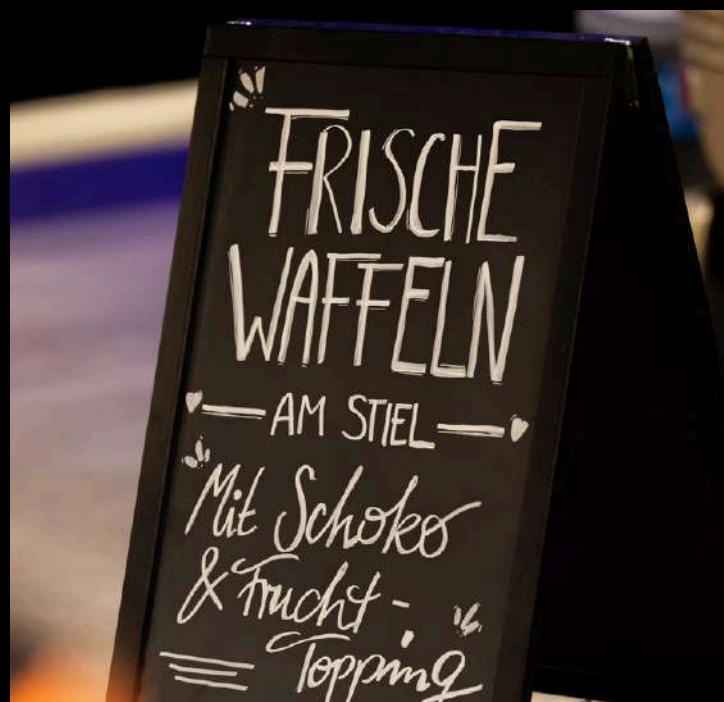 FRISCHE
WAFFELN
AM STIEL
Mit Schoko
& Frucht-
Topping